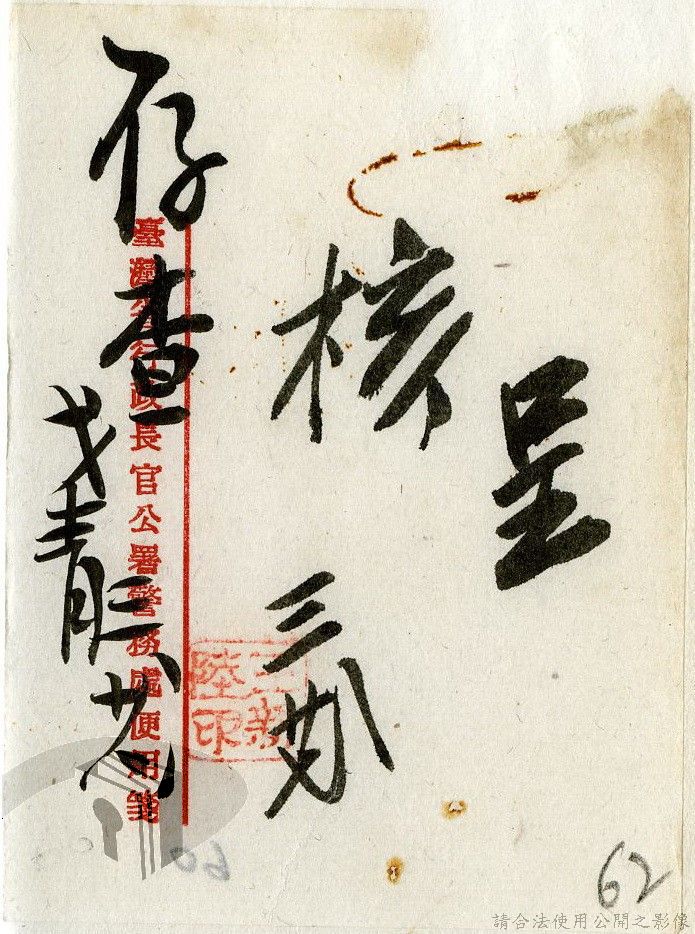 呈
核
三
存查
臺灣省行政長官公署警務處便用箋
62
請合法使用公開之影像